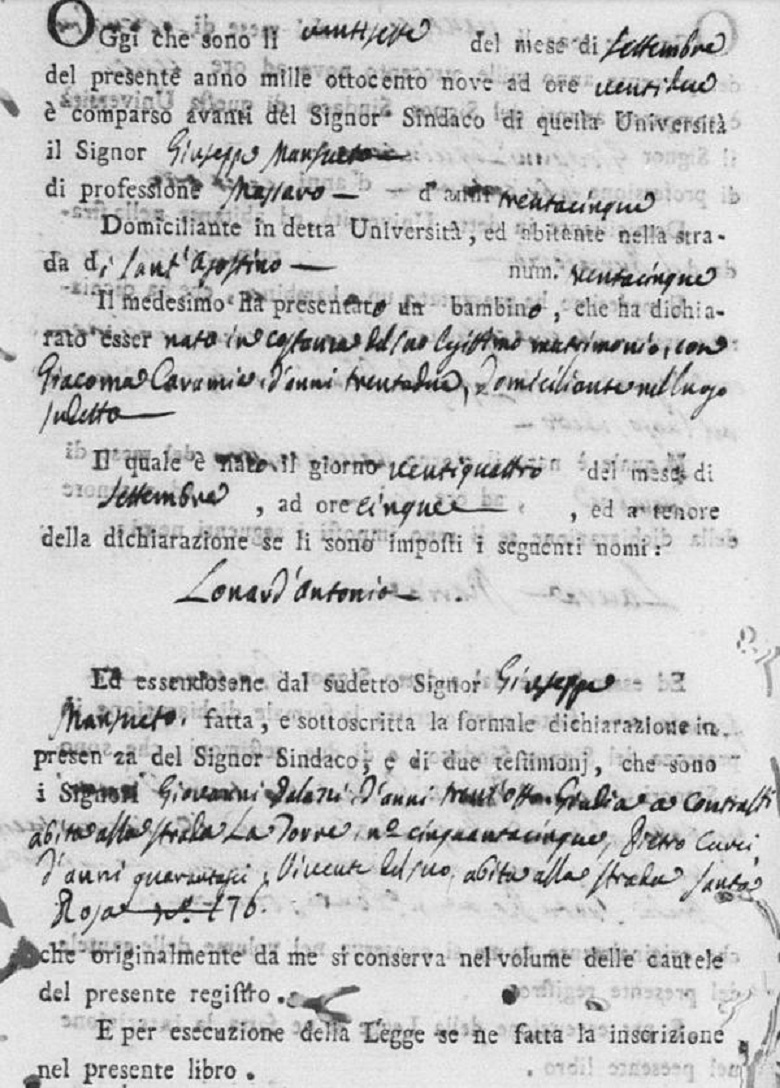 OGgi che sono li ventisette del mese di Settembre
del presente anno mille ottocento nove ad ore ventidue
è comparso avanti del Signor Sindaco di questa Università
il Signor Giuseppe Mansueto
di professione Massaro d'anni trentacinque
Domiciliante in detta Università, ed abitante nella stra-
da di Sant'Agostino num. trentacinque
Il medesimo ha presentato un bambino, che ha dichia-
rato esser nato in costanza del suo legittimo matrimonio, con
Giacoma Caramia, d'anni trentadue, Domiciliante nel luogo
sudetto
Il quale è nato il giorno ventiquattro del mese di
Settembre, ad ore cinque, ed a tenore
della dichiarazione se li sono imposti i seguenti nomi:
Lonard'Antonio
Ed essendosene dal sudetto Signor Giuseppe
Mansueto, fatta, e sottoscritta la formale dichiarazione in
presenza del Signor Sindaco, e di due testimonj, che sono
i Signori Giovanni d'anni trent'otto a Contratti
abita alla strada La Torre, nº cinquantacinque, Pietro Curci
d'anni quarantasei, Vivente del suo, abita alla strada Santa
Rosa nº 176.
che originalmente da me si conserva nel volume delle cautele
del presente registro.
E per esecuzione della Legge se ne fatta la inscrizione
nel presente libro.